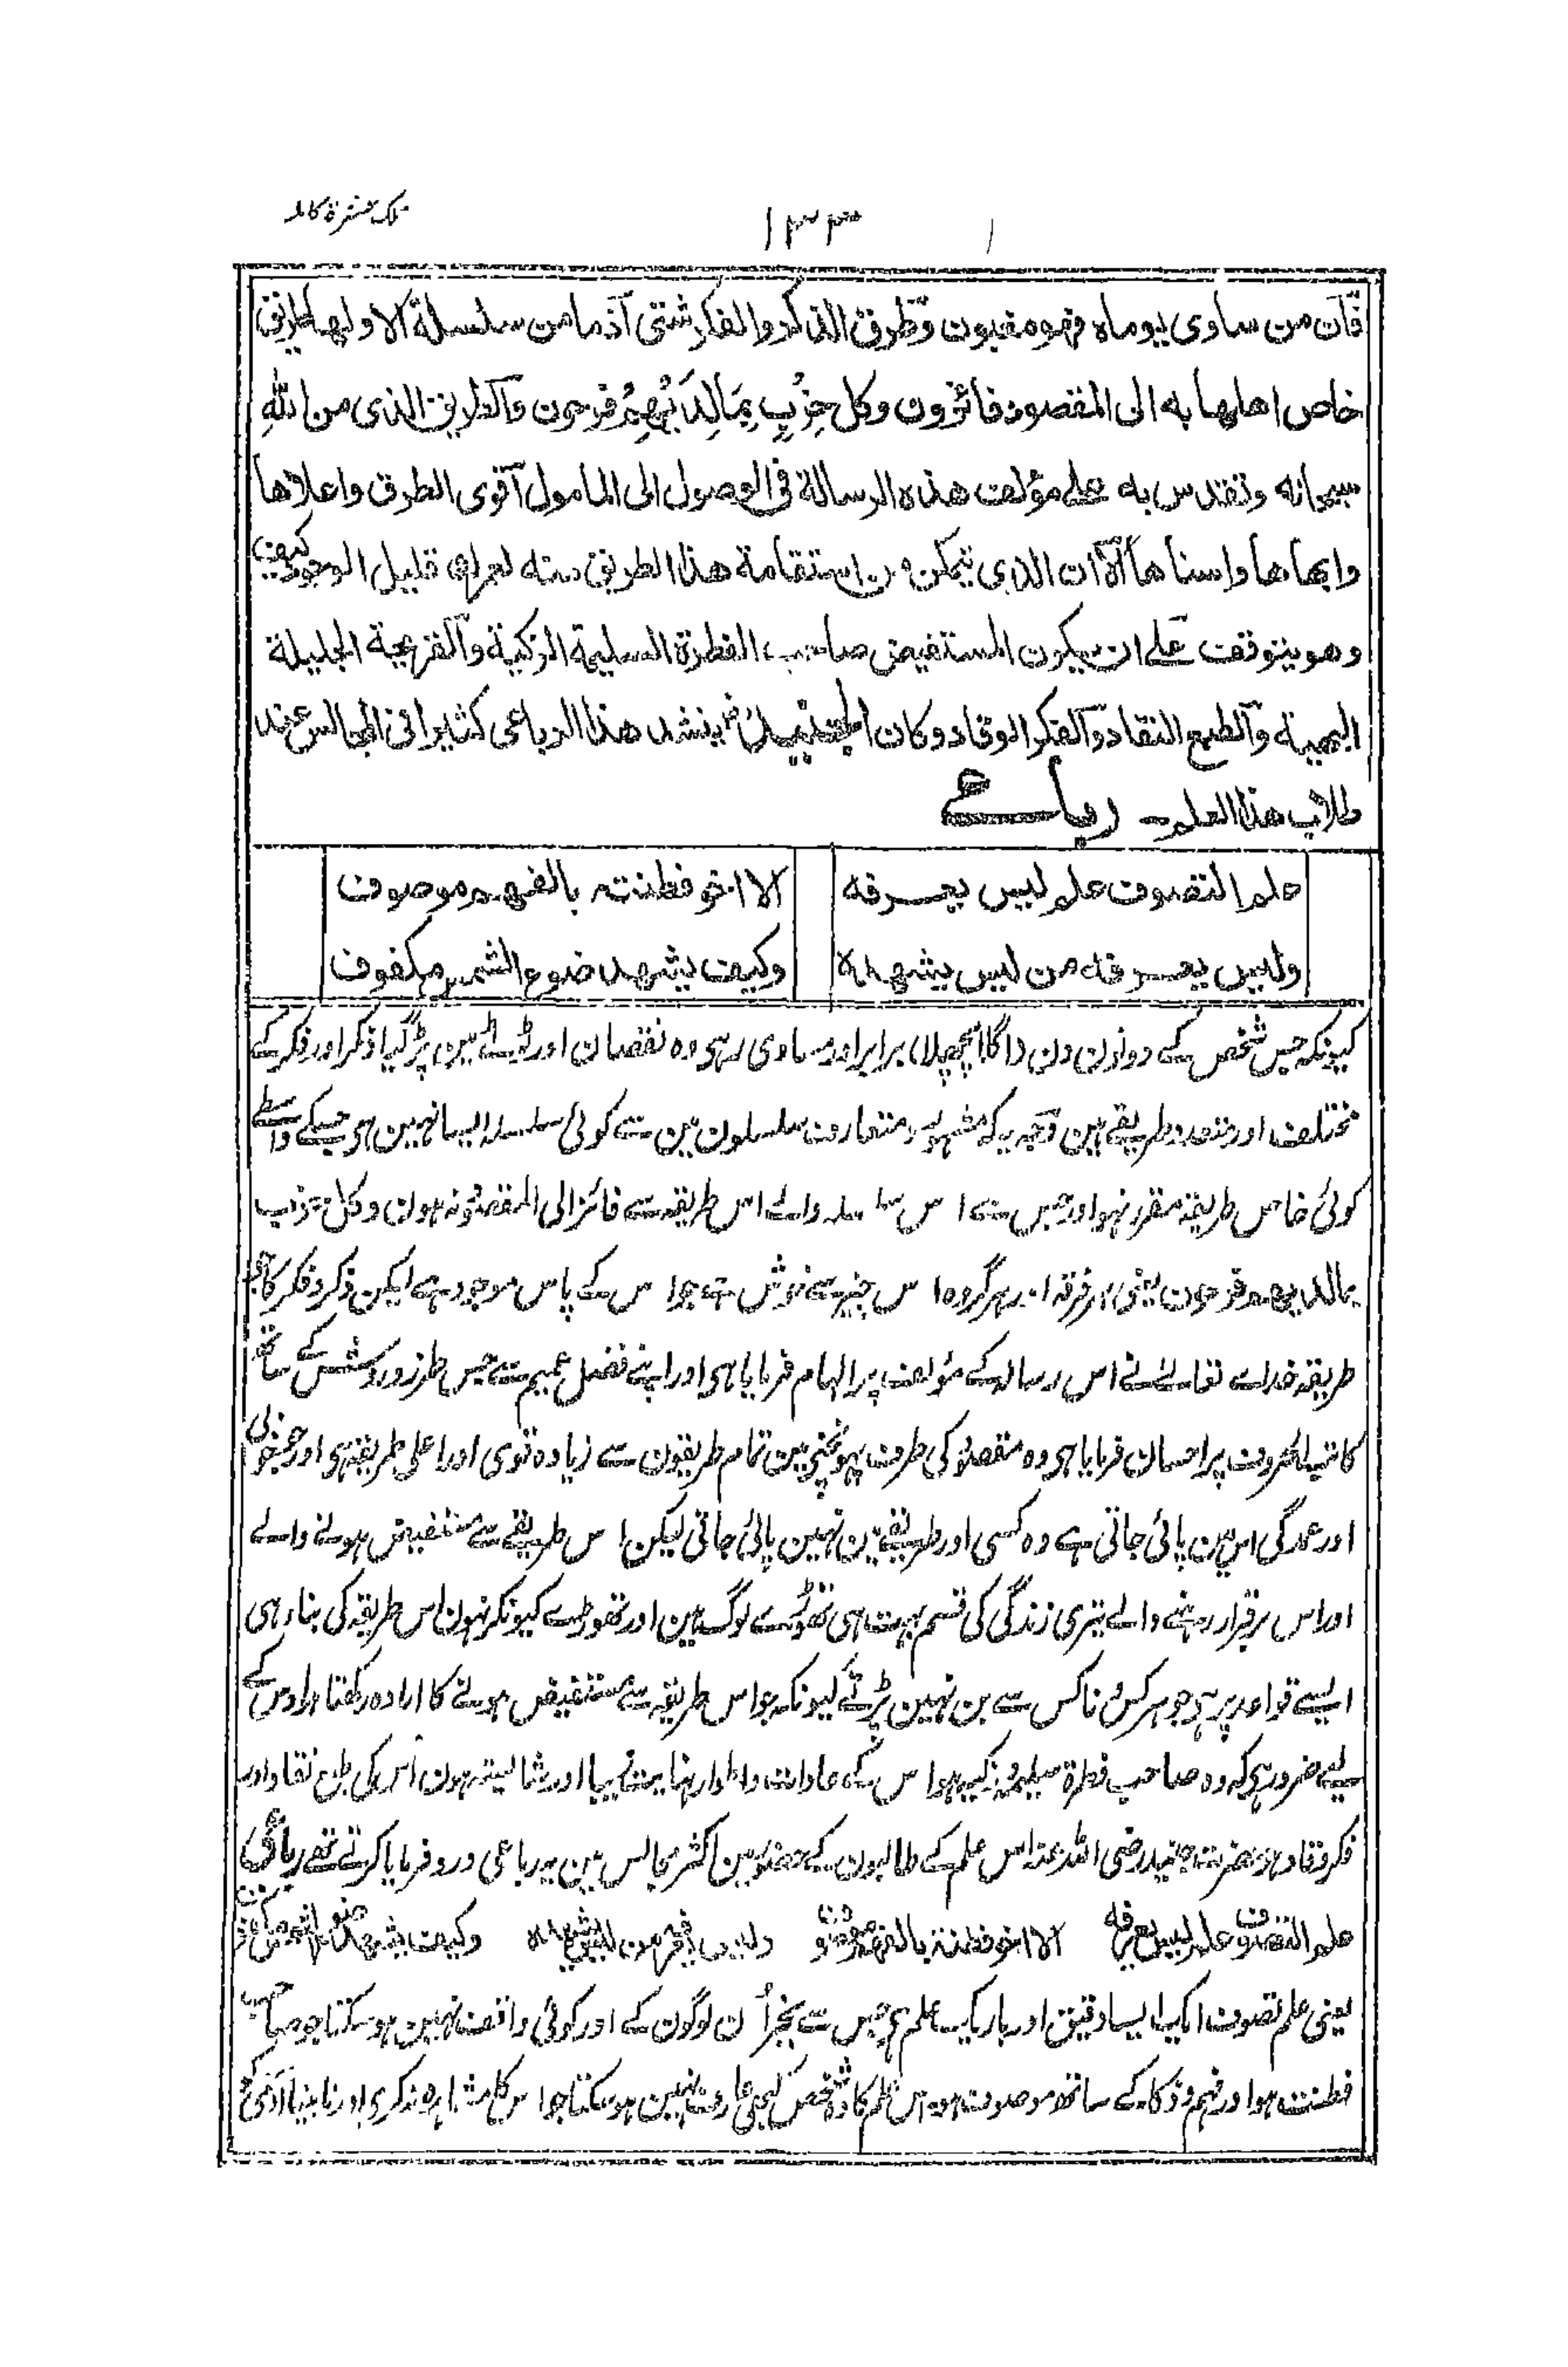 تلک عشرة کاملہ
۱۳۳
فان من ساوى يوماه فهو مغبون وطرق الذكر والفكر شتى اذ ما من سلسلة الا ولها طريق
خاص اهلها به الى المقصود فائزون وكل حِزْبٍ بِمَا لَدَيْهِمْ فرحون والطريق الذى من اللهِ
سبحانه وتقدس به على مؤلف هذه الرسالة فى الوصول الى المامول اقوى الطرق واعلاها
وابهاها واسناها الا ان الذى يمكن من استقامة هذا الطريق منه لعمرى قليل الوجود كيف
وهو يتوقف على ان يكون المستفيض صاحب الفطرة السليمة الزكية والقريحة الجليلة
البهية والطبع النقاد والفكر الوقاد وكان الجنيد رض ينشد هذا الرباعى كثيرا فى المجالس عند
طلاب هذا العلم۔ رباعے
علم التصوف علم ليس يعرفه الا اخو فطنته بالفهم موصوف
وليس يعرفه من ليس يشهده وكيف يشهد ضوء الشمس مكفوف
کیونکہ جس شخص کے دونون دن (اگلا پچھلا) برابر اور مساوی رہی وہ نقصان اور ٹوٹے مین پڑگیا ذکر اور فکر کے
مختلف اور متعدد طریقے ہین وجہ یہ کہ مشہور و متعارف سلسلون مین سے کوئی سلسلہ ایسا نہین ہی جسکے واسطے
کوئی خاص طریقہ مقرر نہو اور جس سے اس سلسلہ والے اس طریقہ سے فائز الی المقصود نہ ہون وکل حزب
بما لدیھم فرحون یعنی ہر فرقہ اور ہر گروہ اس چیز سے خوش ہے جو اس کے پاس موجود ہے لیکن ذکر و فکر کا جو
طریقہ خداے تعالے نے اس رسالہ کے مؤلف پر الہام فرمایا ہی اور اپنے فضل عمیم سے جس طرز و روش کے ساتھ
کاتب الحروف پر احسان فرمایا ہی وہ مقصود کی طرف پہونچنے مین تمام طریقون سے زیادہ قوی اور اعلی طریقہ ہی اور جو خوبی
اور عمدگی اس مین پائی جاتی ہے وہ کسی اور طریقے مین نہین پائی جاتی لیکن اس طریقے سے مستفیض ہونے والے
اور اس پر قرار رہنے والے تیری زندگی کی قسم بہت ہی تھوڑے لوگ ہین اور تھوڑے کیونکر نہون اس طریقہ کی بناء ہی
ایسے قواعد پر ہی جو ہر کس و ناکس سے بن نہین پڑتے کیونکہ جو اس طریقہ سے مستفیض ہونے کا ارادہ رکھتا ہو اوس کے
لیے ضرور ہی کہ وہ صاحب فطرة سلیمہ و زکیہ ہو اس کے عادات و اطوار نہایت زیبا اور شائستہ ہون اس کی طبع نقاد اور
فکر وقاد ہو حضرت جنید رضی اللہ عنہ اس علم کے طالبون کے حضور مین اکثر مجالس مین یہ رباعی ورد فرمایا کرتے تھے رباعی
علم التصوف علم ليس يعرفه الا اخو فطنة بالفهم موصوف وليس يعرفه من ليس يشهده وكيف يشهد ضوء الشمس مكفوف
یعنی علم تصوف ایک ایسا دقیق اور باریک علم ہی جس سے بجز اُن لوگون کے اور کوئی واقف نہین ہوسکتا جو صاحب
فطنت ہو اور فہم و ذکاء کے ساتھ موصوف ہو اس علم کا وہ شخص کبھی عارف نہین ہوسکتا جو اس کا مشاہدہ نہ کری اور نابینا آدمی